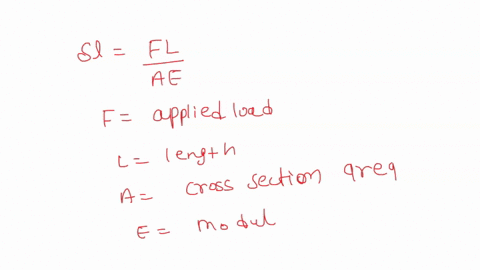 δl = FL / AE
F = applied load
L = length
A = cross section area
E = modul